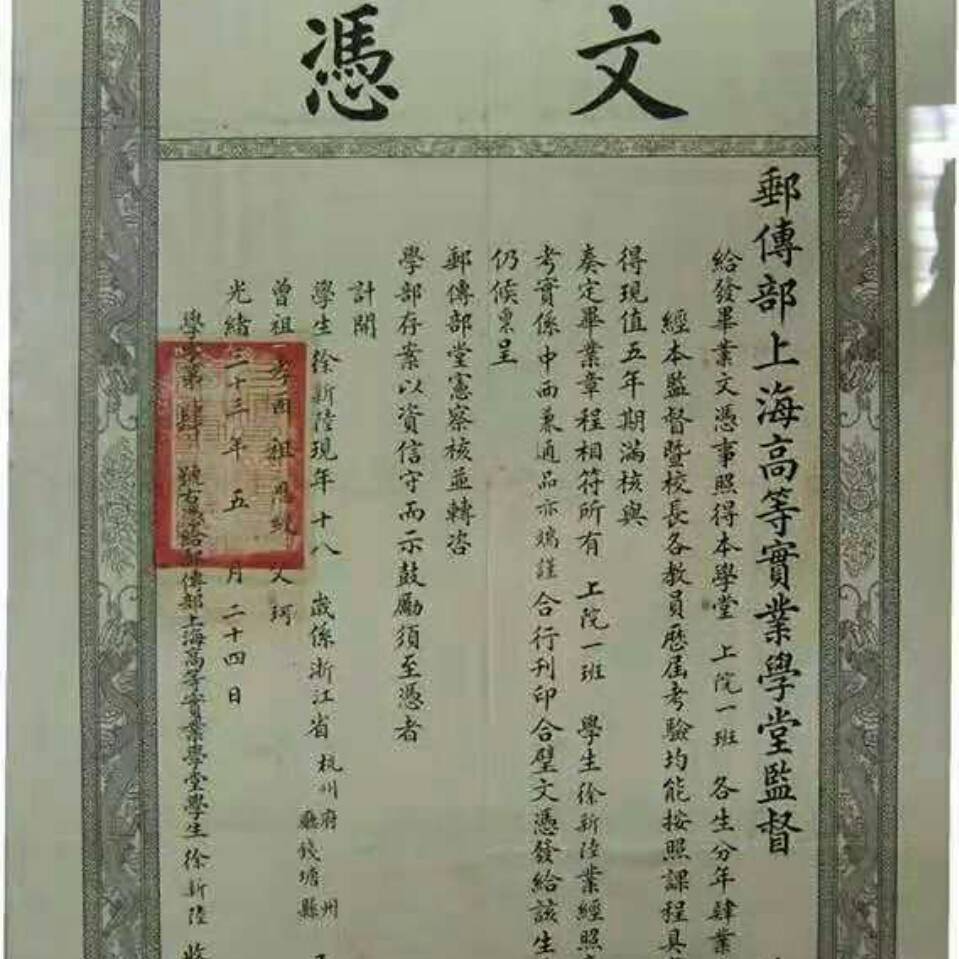 文憑
郵傳部上海高等實業學堂監督
給發畢業文憑事照得本學堂 上院一班 各生分年肄業
經本監督暨校長各教員歷屆考驗均能按照課程具
得現值五年期滿核與
奏定畢業章程相符所有 上院一班 學生徐新陸業經照
考實係中西兼通品亦端謹合行刊印合璧文憑發給該生
仍候稟呈
郵傳部堂憲察核並轉咨
學部存案以資信守而示鼓勵須至憑者
計開
學生徐新陸現年十八歲係浙江省杭州府 州廳錢塘縣
曾祖 祖 父 珂
光緒三十三年五月二十四日
學 第 肆 號右憑給郵傳部上海高等實業學堂學生徐新陸收